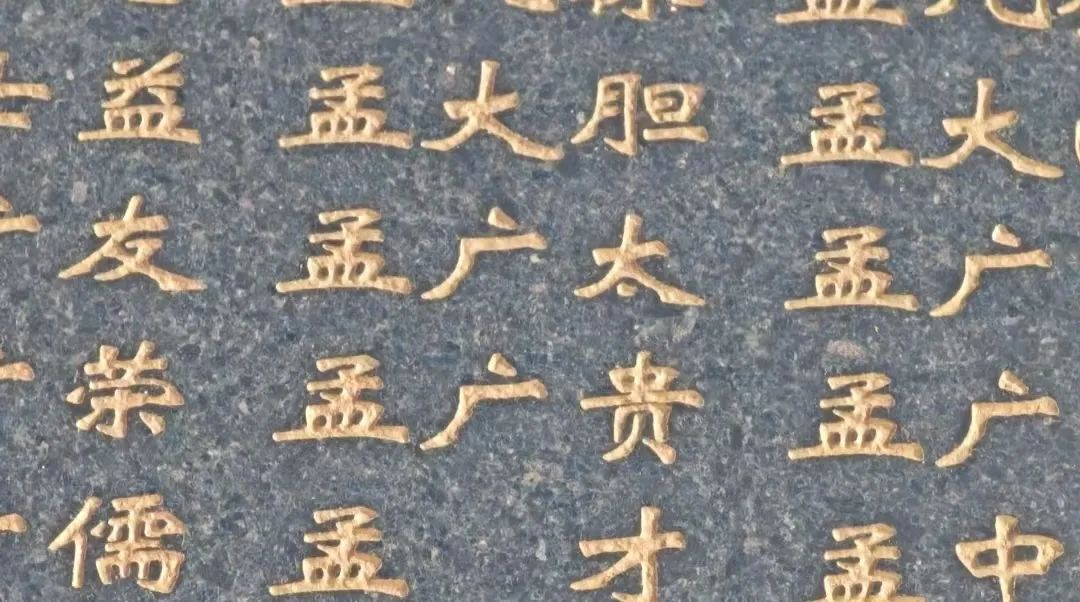 益 孟大胆 孟大
友 孟广太 孟广
荣 孟广贵 孟广
儒 孟才 孟中